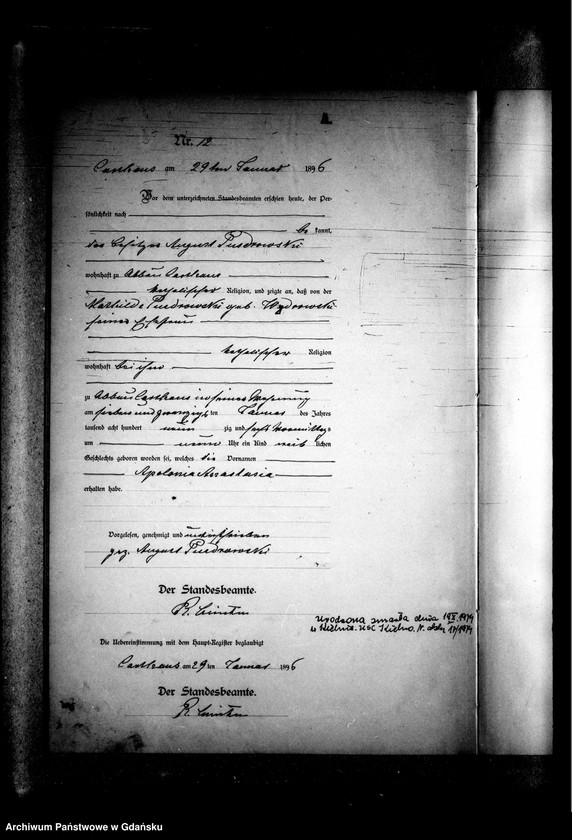 A.
Nr. 12
Carthaus am 29ten Januar 1896
Vor dem unterzeichneten Standesbeamten erschien heute, der Per-
sönlichkeit nach
be kannt,
der Besitzer August Puzdrowski
wohnhaft zu Abbau Carthaus
katholischer Religion, und zeigte an, daß von der
Mathilde Puzdrowski geb.
seiner Ehefrau
katholischer Religion
wohnhaft bei ihm
zu Abbau Carthaus in seiner Wohnung
am sieben und zwanzigsten Januar des Jahres
tausend acht hundert neun zig und sechs Vormittags
um neun Uhr ein Kind weib lichen
Geschlechts geboren worden sei, welches die Vornamen
Apolonia Anastasia
erhalten habe.
Vorgelesen, genehmigt und unterschrieben
gez. August Puzdrowski
Der Standesbeamte.
Die Uebereinstimmung mit dem Haupt-Register beglaubigt
Carthaus am 29 ten Januar 1896
Der Standesbeamte.
Urodzona zmarła dnia 1979
w Kielnie. USC Kielno. Nr. aktu 17/1979
Archiwum Państwowe w Gdańsku